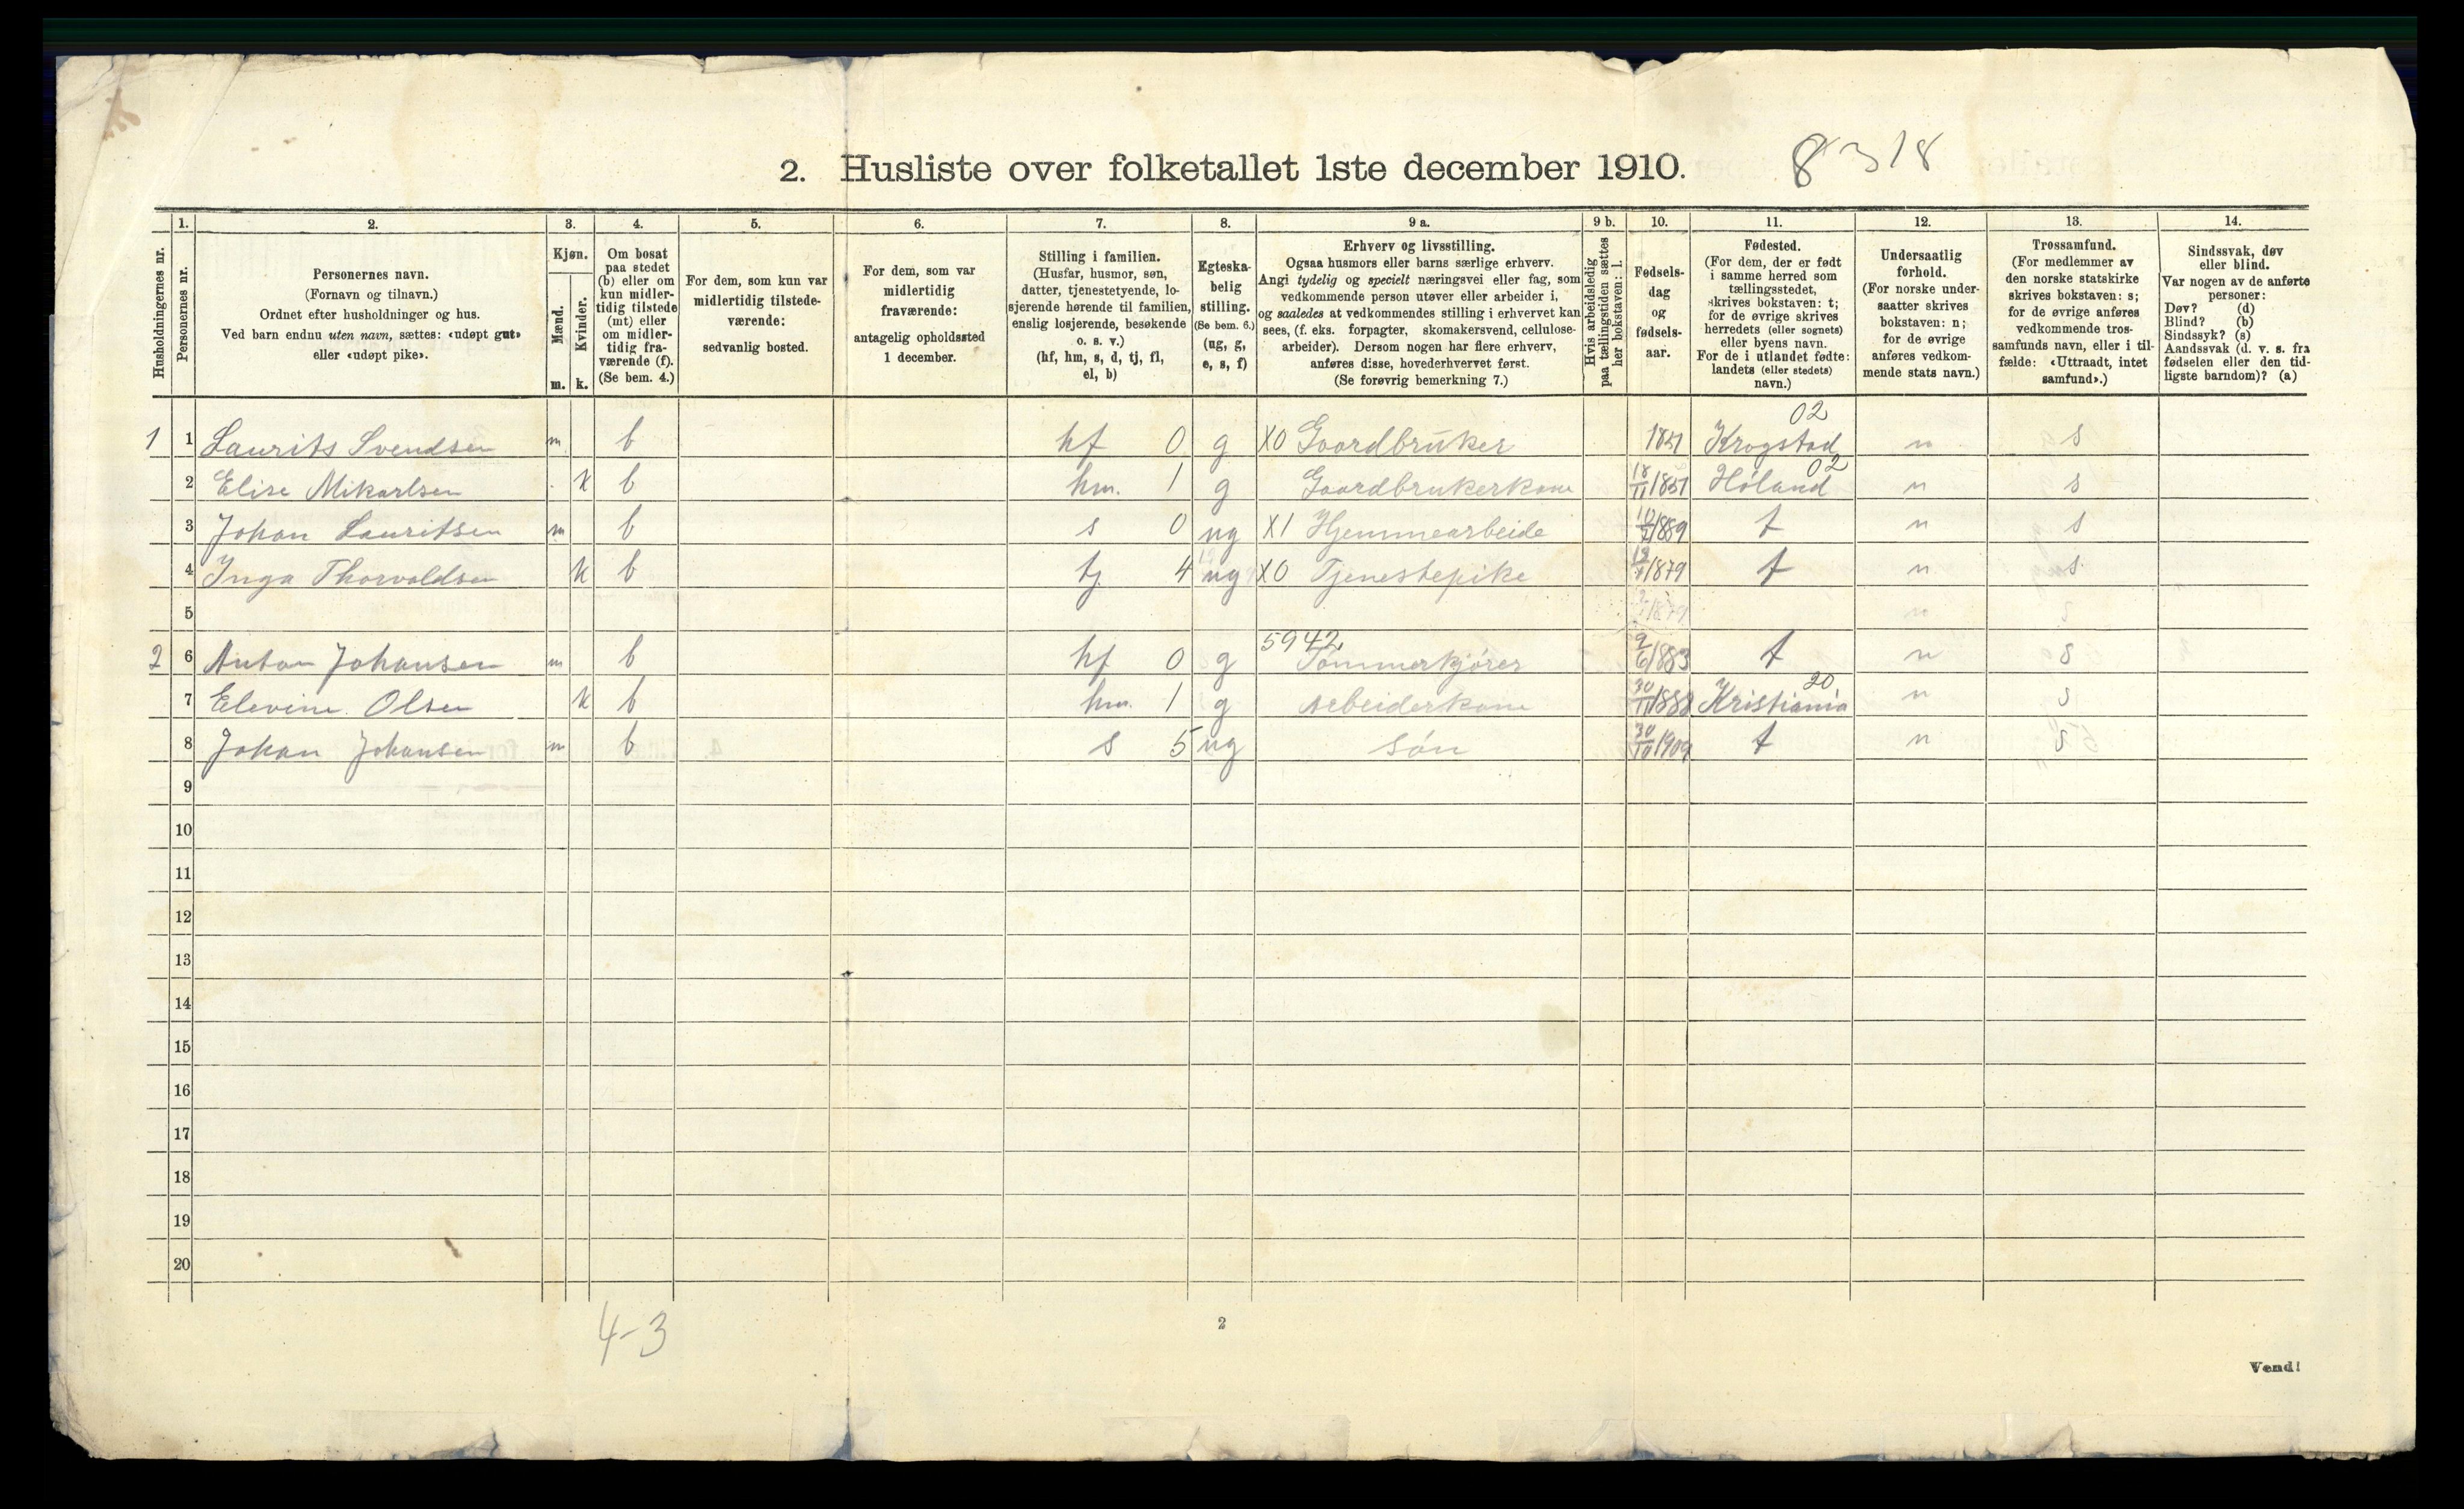 2. Husliste over folketallet 1ste december 1910. 8318
Husholdningernes nr.
1. Personernes nr.
2. Personernes navn. (Fornavn og tilnavn.) Ordnet efter husholdninger og hus. Ved barn endnu uten navn, sættes: «udøpt gut» eller «udøpt pike».
3. Kjøn. Mænd. m. Kvinder. k.
4. Om bosat paa stedet (b) eller om kun midlertidig tilstede (mt) eller om midlertidig fraværende (f). (Se bem. 4.)
5. For dem, som kun var midlertidig tilstedeværende: sedvanlig bosted.
6. For dem, som var midlertidig fraværende: antagelig opholdssted 1 december.
7. Stilling i familien. (Husfar, husmor, søn, datter, tjenestetyende, losjerende hørende til familien, enslig losjerende, besøkende o. s. v.) (hf, hm, s, d, tj, fl, el, b)
8. Egteskabelig stilling. (Se bem. 6.) (ug, g, e, s, f)
9 a. Erhverv og livsstilling. Ogsaa husmors eller barns særlige erhverv. Angi tydelig og specielt næringsvei eller fag, som vedkommende person utøver eller arbeider i, og saaledes at vedkommendes stilling i erhvervet kan sees, (f. eks. forpagter, skomakersvend, cellulosearbeider). Dersom nogen har flere erhverv, anføres disse, hovederhvervet først. (Se forøvrig bemerkning 7.)
9 b. Hvis arbeidsledig paa tællingstiden sættes her bokstaven: l.
10. Fødselsdag og fødselsaar.
11. Fødested. (For dem, der er født i samme herred som tællingsstedet, skrives bokstaven: t; for de øvrige skrives herredets (eller sognets) eller byens navn. For de i utlandet fødte: landets (eller stedets) navn.)
12. Undersaatlig forhold. (For norske undersaatter skrives bokstaven: n; for de øvrige anføres vedkommende stats navn.)
13. Trossamfund. (For medlemmer av den norske statskirke skrives bokstaven: s; for de øvrige anføres vedkommende trossamfunds navn, eller i tilfælde: «Uttraadt, intet samfund».)
14. Sindssvak, døv eller blind. Var nogen av de anførte personer: Døv? (d) Blind? (b) Sindssyk? (s) Aandssvak (d. v. s. fra fødselen eller den tidligste barndom)? (a)
1 1 Laurits Svendsen m b hf 0 g X0 Goordbruker 1851 Krogstad 02 n s
2 Elise Mikarlsen k b hm. 1 g Goordbrukerkone 18/11 1851 Høland 02 n s
3 Johan Lauritsen m b s 0 ug X1 Hjemmearbeide 1889 t n s
4 Inga Thorvaldsen k b tj 4 ug X0 Tjenestepike 1879 t n s
5
2 6 Anton Johansen m b hf 0 g 5942 Tømmerkjører 2/6 1883 t n s
7 Elevine Olsen k b hm. 1 g Arbeiderkone 30/11 1888 Kristiania 20 n s
8 Johan Johansen m b s 5 ug Søn 30/10 1909 t n s
9
10
11
12
13
14
15
16
17
18
19
20
4-3
2
Vend!